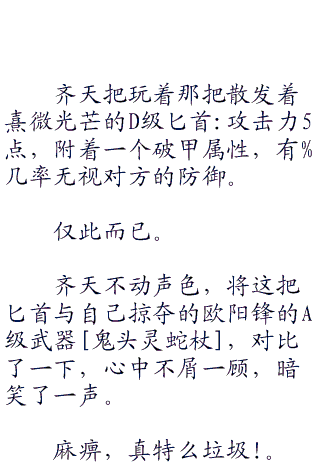 齐天把玩着那把散发着
熹微光芒的D级匕首:攻击力5
点，附着一个破甲属性，有%
几率无视对方的防御。
仅此而已。
齐天不动声色，将这把
匕首与自己掠夺的欧阳锋的A
级武器[鬼头灵蛇杖]，对比
了一下，心中不屑一顾，暗
笑了一声。
麻痹，真特么垃圾!。